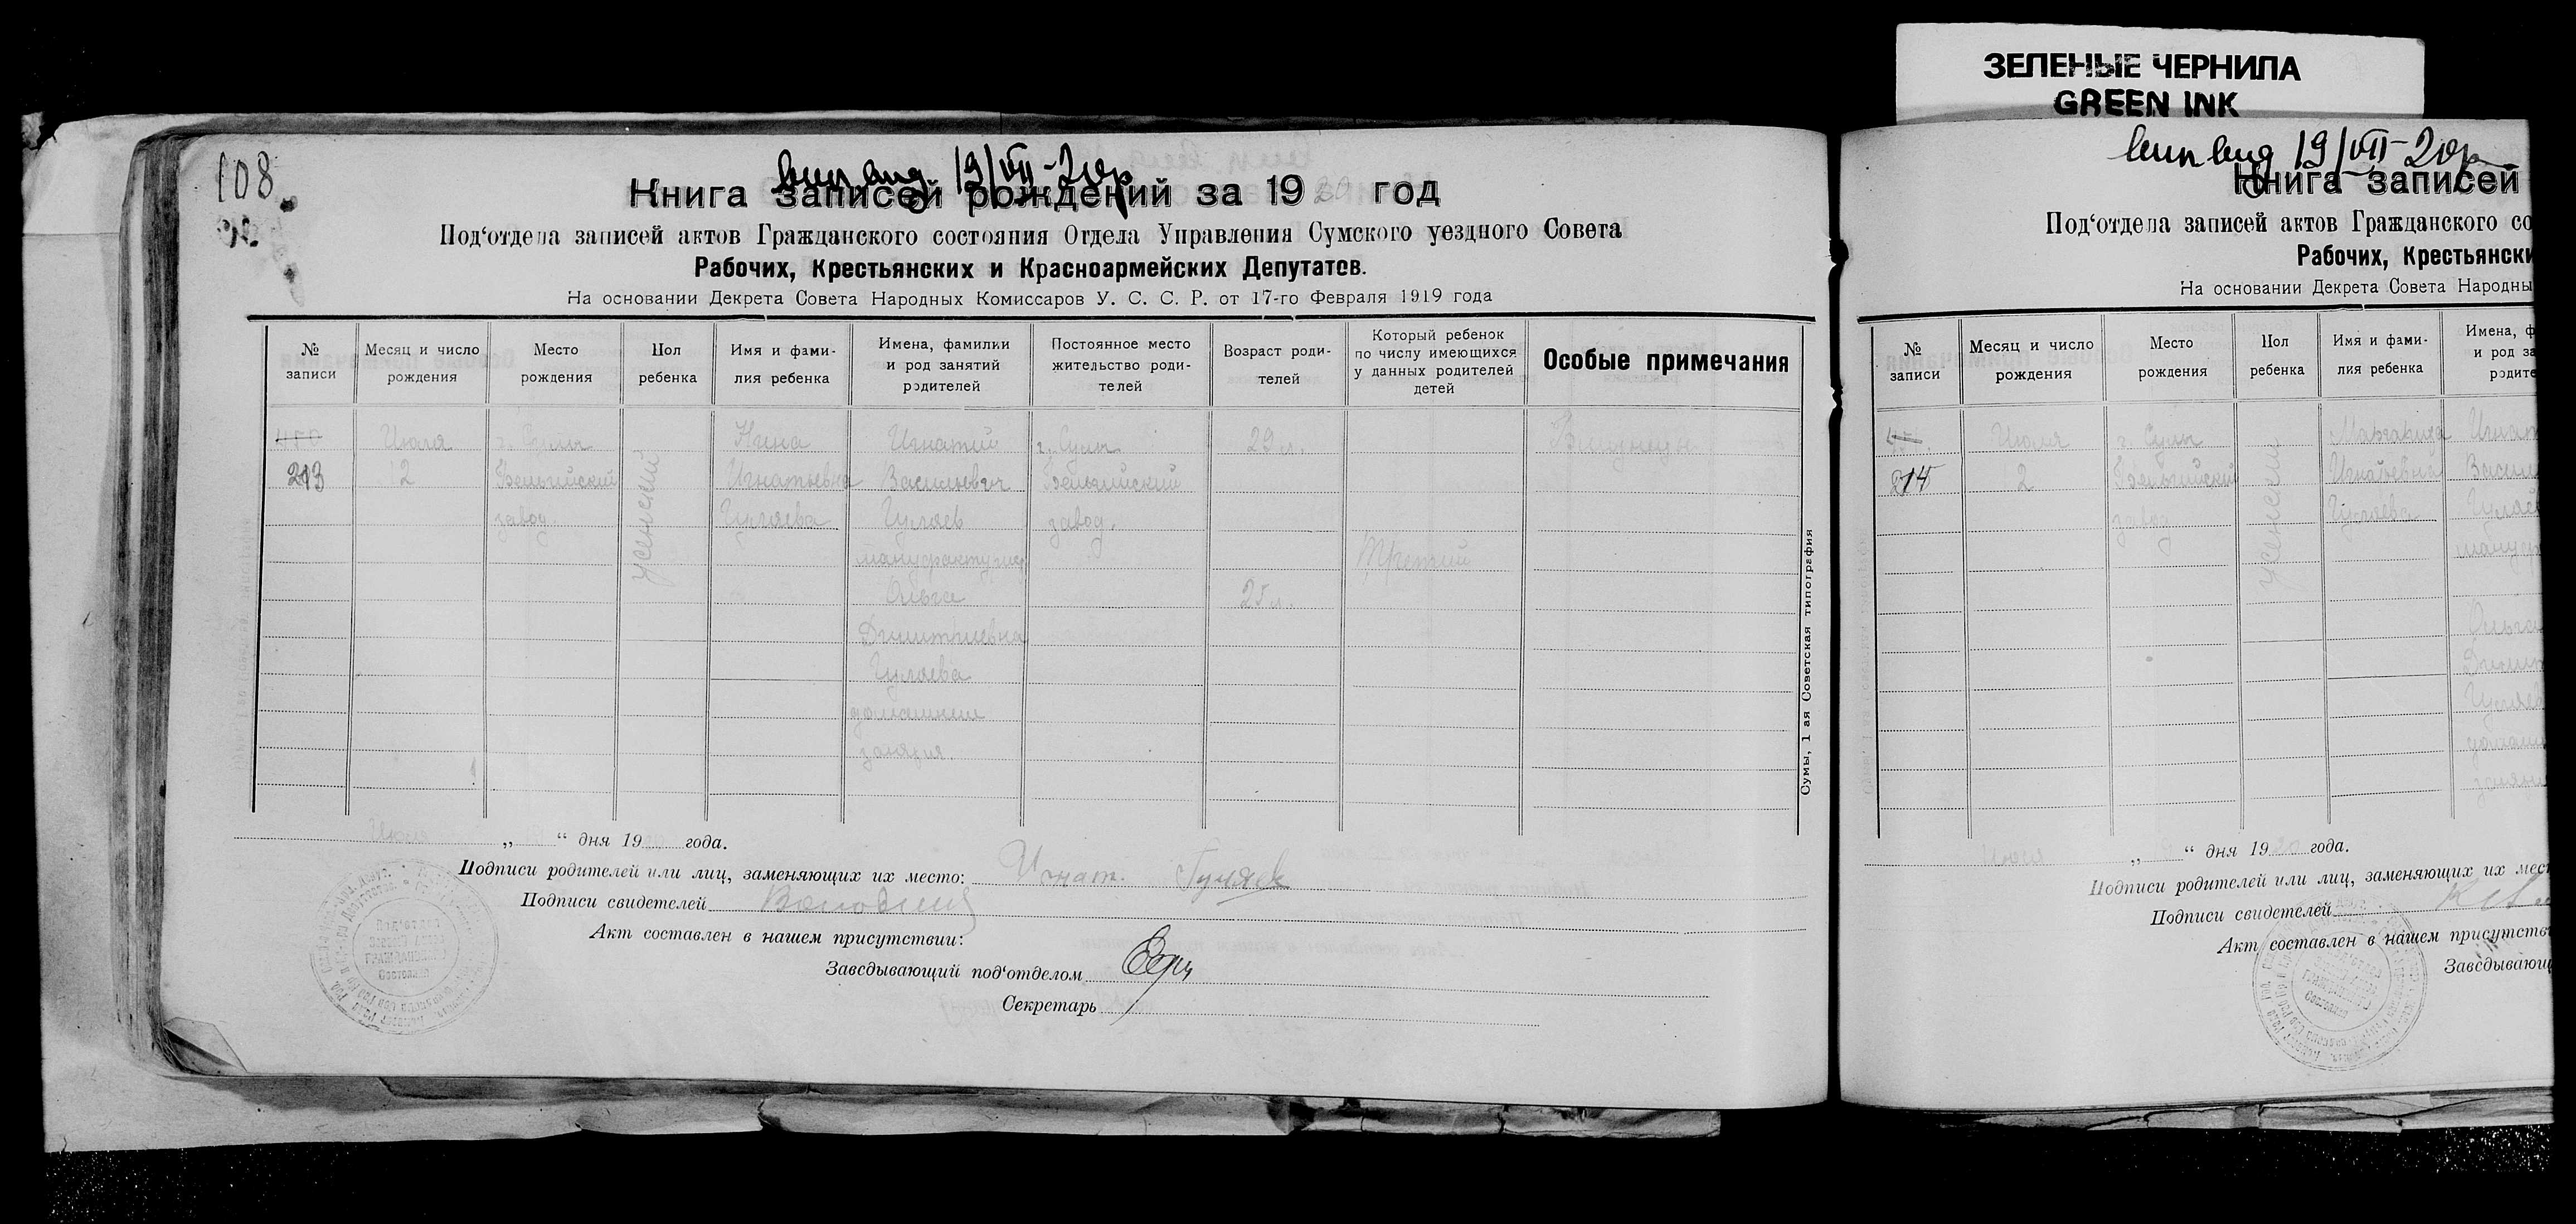 ЗЕЛЕНЫЕ ЧЕРНИЛА
GREEN INK
108
19/VII-20г
Книга записей рождений за 1920 год
Под‘отдела записей актов Гражданского состояния Отдела Управления Сумского уездного Совета
Рабочих, Крестьянских и Красноармейских Депутатов.
На основании Декрета Совета Народных Комиссаров У. С. С. Р. от 17-го Февраля 1919 года
№ записи
Месяц и число рождения
Место рождения
Пол ребенка
Имя и фами-
лия ребенка
Имена, фамилии
и род занятий
родителей
Постоянное место
жительство роди-
телей
Возраст роди-
телей
Который ребенок
по числу имеющихся
у данных родителей
детей
Особые примечания
450
213
Июля
12
г. Сумы
Бельгийский
завод.
женский
Нина
Игнатьевна
Гуляева
Игнатий
Васильевич
Гуляев
Ольга
Дмитриевна
Гуляева
домашния
занятия.
г. Сумы
Бельгийский
завод.
29 л.
25 л.
Третий
Сумы, 1 ая Советская типография
Июля „ “ дня 19 года.
Подписи родителей или лиц, заменяющих их место: Игнат. Гуляев
Подписи свидетелей
Акт составлен в нашем присутствии:
Заведывающий под‘отделом
Секретарь
19/VII-20г
Книга записей
Под‘отдела записей актов Гражданского со
Рабочих, Крестьянски
На основании Декрета Совета Народны
№ записи
Месяц и число рождения
Место рождения
Пол ребенка
Имя и фами-
лия ребенка
Имена, ф
и род за
родите
214
Июля
12
г. Сумы
Бельгийский
завод
женский
Маргарита
Игнатьевна
Гуляева
Игнат
Васил
Гуляе
Ольга
Гуляев
Июля „ “ дня 1920 года.
Подписи родителей или лиц, заменяющих их мест
Подписи свидетелей
Акт составлен в нашем присутств
Заведывающ